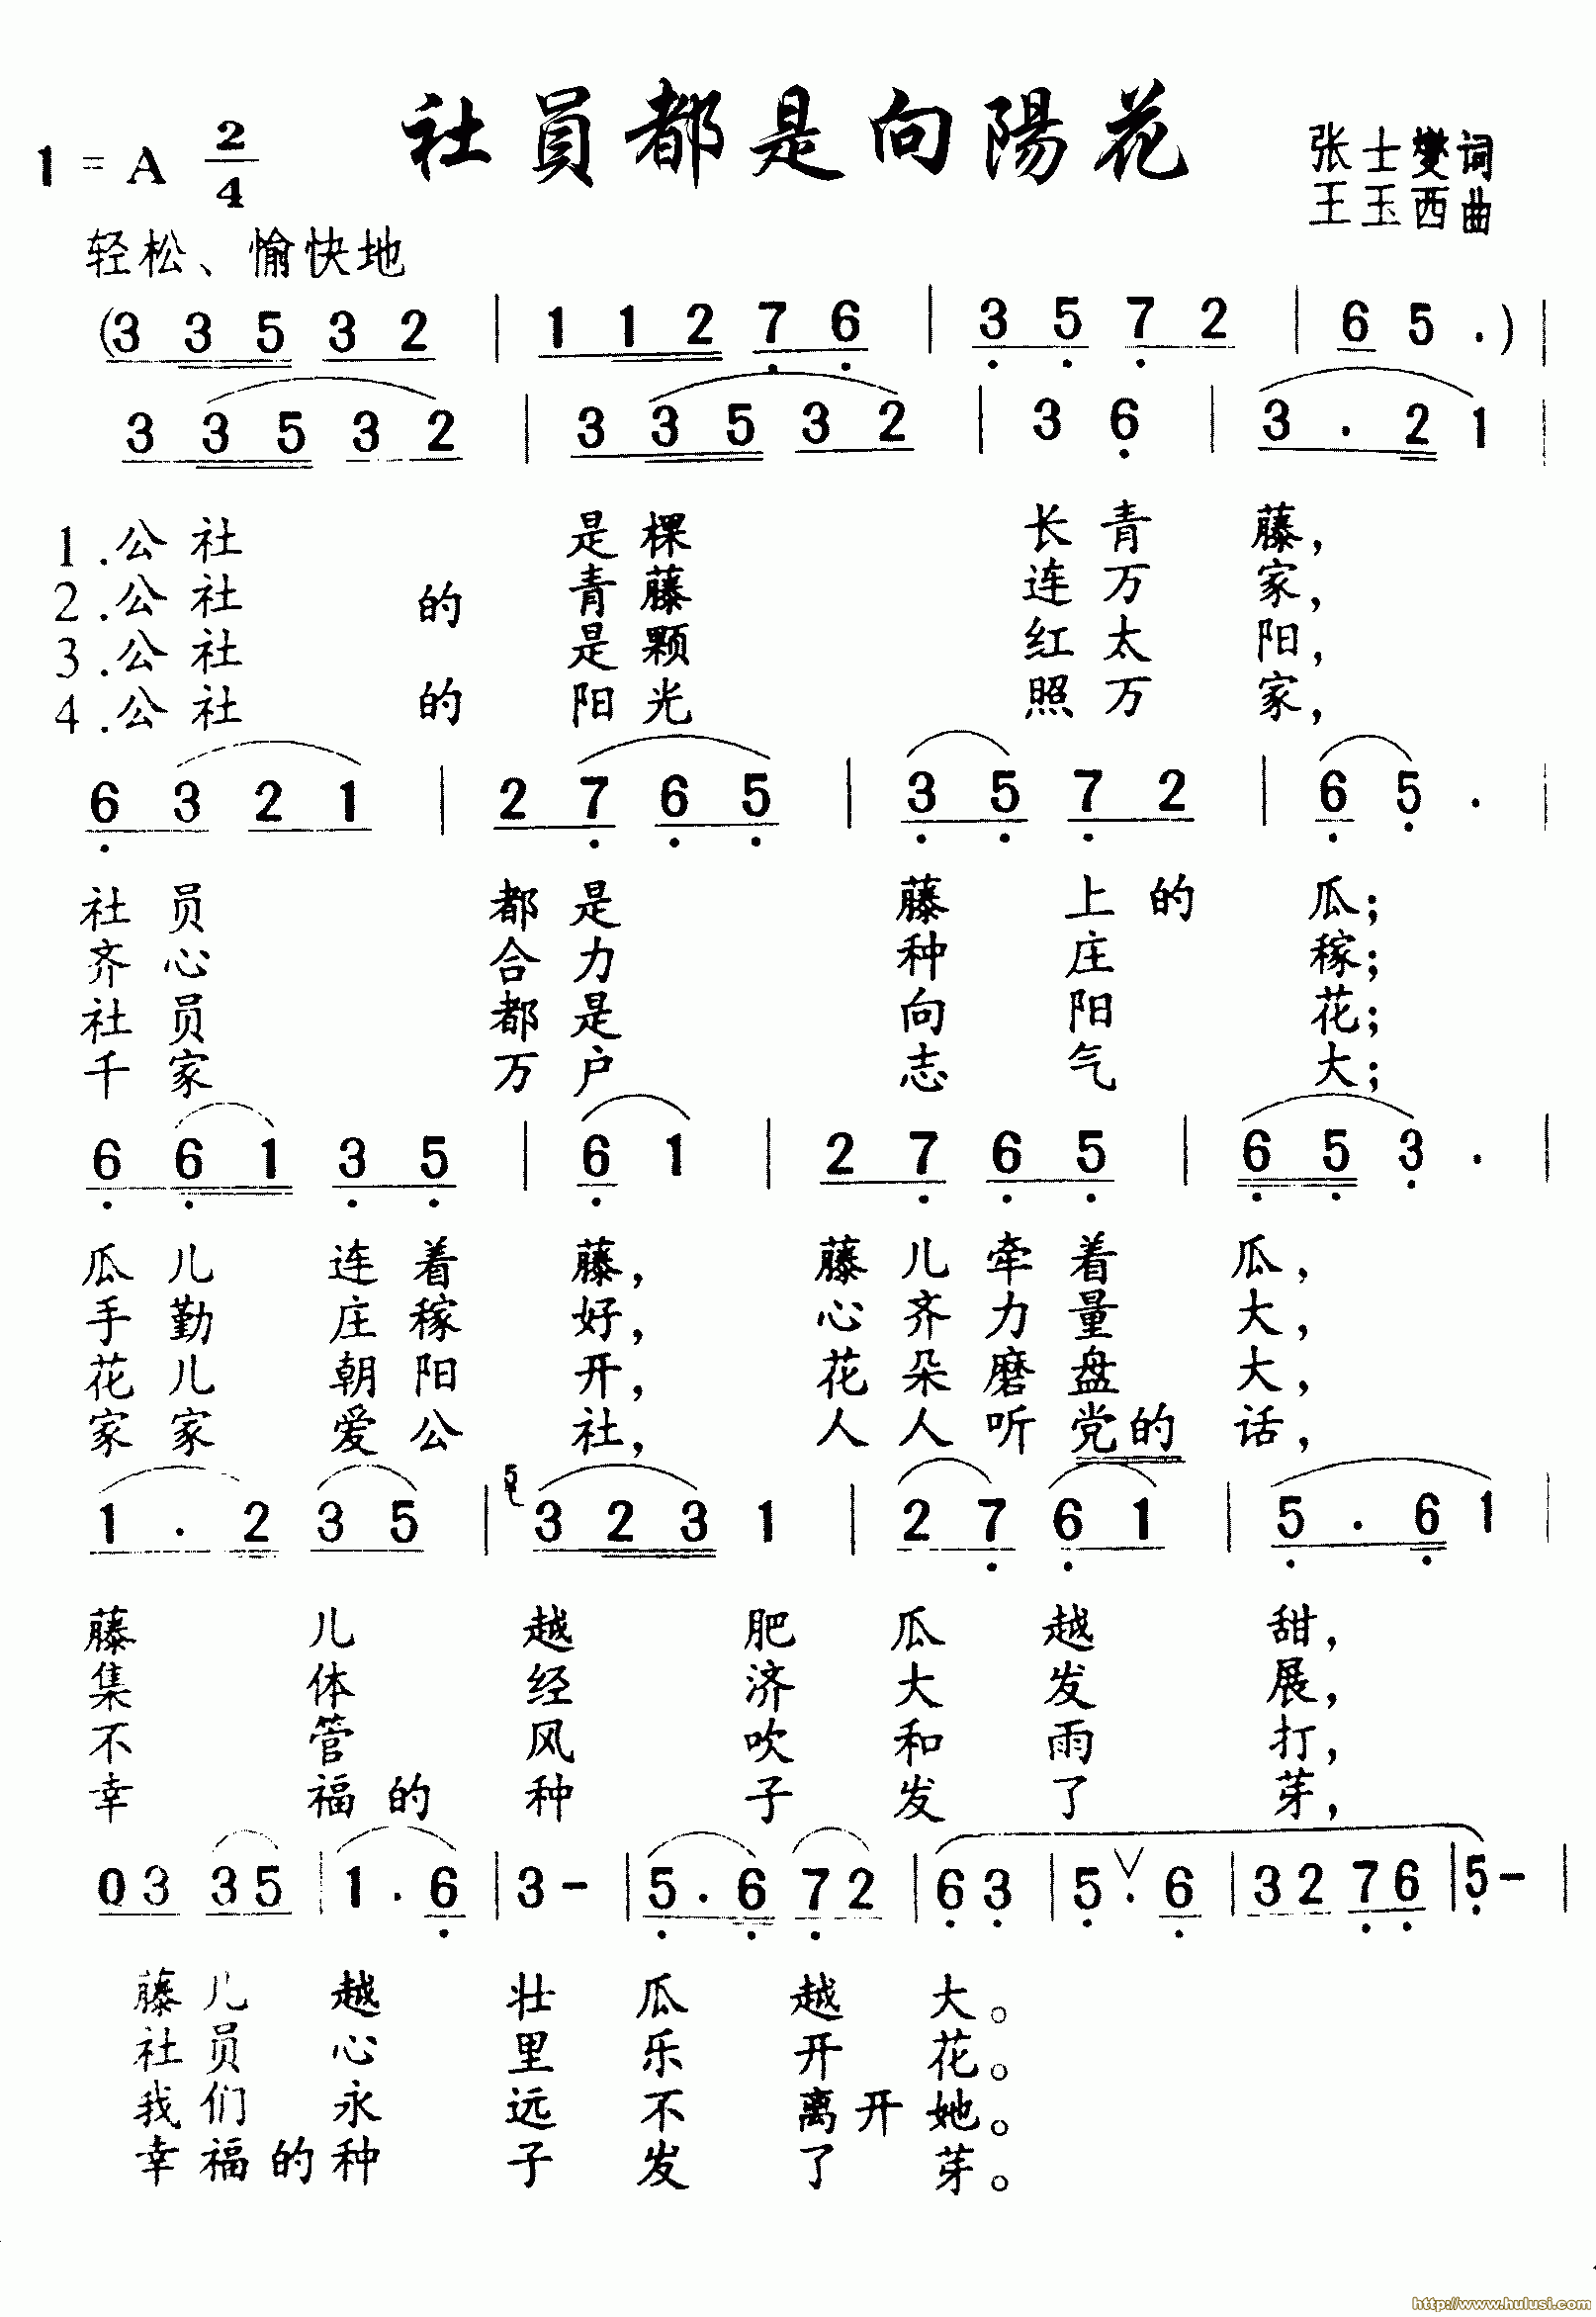 社員都是向陽花
1 = A 2/4
张士燮词
王玉西曲
轻松、愉快地
(3 3 5 3 2 | 1 1 2 7 6 | 3 5 7 2 | 6 5 . ) |
3 3 5 3 2 | 3 3 5 3 2 | 3 6 | 3 . 2 1 |
1.公社 是棵 长青藤,
2.公社的青藤 连万家,
3.公社 是颗 红太阳,
4.公社的阳光 照万家,
6 3 2 1 | 2 7 6 5 | 3 5 7 2 | 6 5 . |
社员 都是 藤上的瓜;
齐心 合力 种庄稼;
社员 都是 向阳花;
千家 万户 志气大;
6 6 1 3 5 | 6 1 | 2 7 6 5 | 6 5 3 . |
瓜儿连着藤, 藤儿牵着瓜,
手勤庄稼好, 心齐力量大,
花儿朝阳开, 花朵磨盘大,
家家爱公社, 人人听党的话,
1 . 2 3 5 | 5 3 2 3 1 | 2 7 6 1 | 5 . 6 1 |
藤儿越肥瓜越甜,
集体经济大发展,
不管风吹和雨打,
幸福的种子发了芽,
0 3 3 5 | 1 . 6 | 3 – | 5 . 6 7 2 | 6 3 | 5 . 6 | 3 2 7 6 | 5 – |
藤儿越壮瓜越大。
社员心里乐开花。
我们永远不离开她。
幸福的种子发了芽。
http://www.hulusi.com